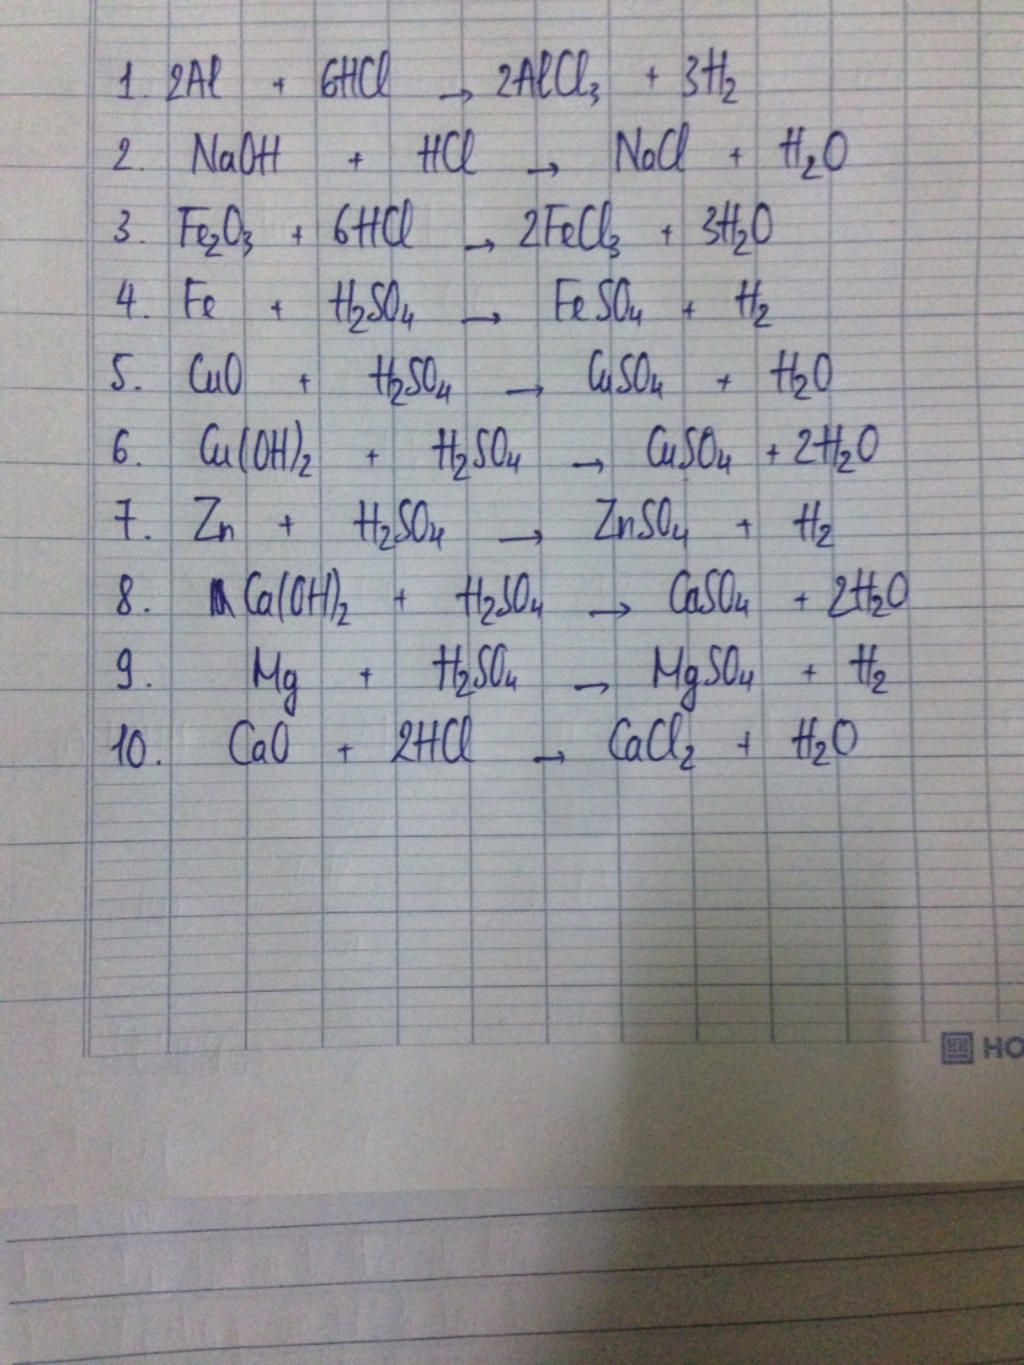 1. 2Al + 6HCl → 2AlCl₃ + 3H₂
2. NaOH + HCl → NaCl + H₂O
3. Fe₂O₃ + 6HCl → 2FeCl₃ + 3H₂O
4. Fe + H₂SO₄ → FeSO₄ + H₂
5. CuO + H₂SO₄ → CuSO₄ + H₂O
6. Cu(OH)₂ + H₂SO₄ → CuSO₄ + 2H₂O
7. Zn + H₂SO₄ → ZnSO₄ + H₂
8. Ca(OH)₂ + H₂SO₄ → CaSO₄ + 2H₂O
9. Mg + H₂SO₄ → MgSO₄ + H₂
10. CaO + 2HCl → CaCl₂ + H₂O
HO